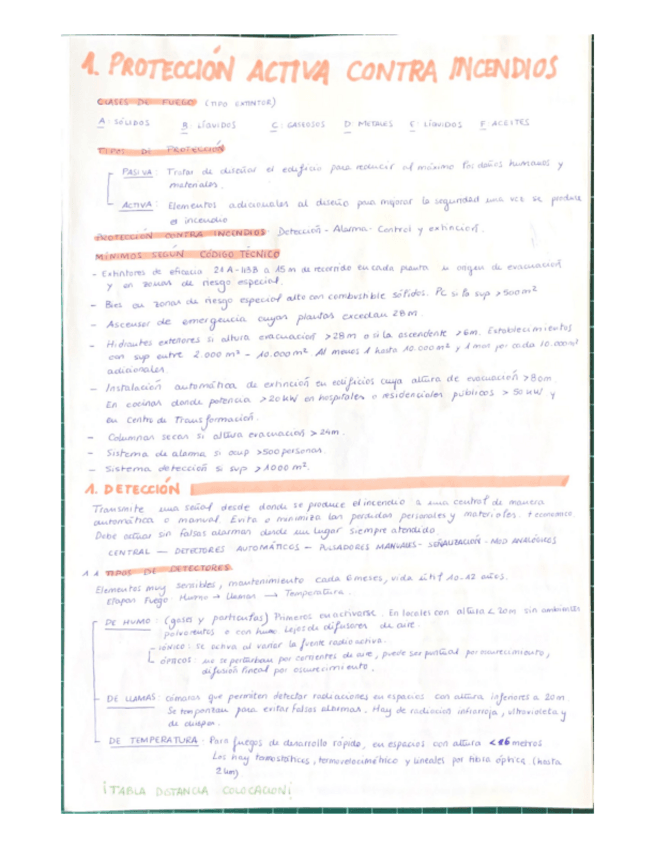 1. PROTECCIÓN ACTIVA CONTRA INCENDIOS
CLASES DE FUEGO (TIPO EXTINTOR)
A: SÓLIDOS B: LÍQUIDOS C: GASEOSOS D: METALES E: LÍQUIDOS F: ACEITES
TIPOS DE PROTECCIÓN
PASIVA: Tratar de diseñar el edificio para reducir al máximo los daños humanos y
materiales.
ACTIVA: Elementos adicionales al diseño para mejorar la seguridad una vez se produce
el incendio
PROTECCIÓN CONTRA INCENDIOS: Detección - Alarma - Control y extinción.
MÍNIMOS SEGÚN CÓDIGO TÉCNICO
- Extintores de eficacia 21A-113B a 15m de recorrido en cada planta u origen de evacuación
y en zonas de riesgo especial.
- Bies en zonas de riesgo especial alto con combustible sólidos. PC si la sup >500m²
- Ascensor de emergencia cuyas plantas excedan 28m.
- Hidrantes exteriores si altura evacuación >28m o si la ascendente >6m. Establecimientos
con sup entre 2.000m² - 10.000m² Al menos 1 hasta 10.000m² y 1 más por cada 10.000m²
adicionales.
- Instalación automática de extinción en edificios cuya altura de evacuación >80m
En cocinas donde potencia >20kW en hospitales o residenciales públicos >50kW y
en Centro de Transformación.
- Columnas secas si altura evacuación >24m.
- Sistema de alarma si ocup >500 personas.
- Sistema detección si sup >1000m².
1. DETECCIÓN
Transmite una señal desde donde se produce el incendio a una central de manera
automática o manual. Evita o minimiza las perdidas personales y materiales. + económico.
Debe actuar sin falsas alarmas desde un lugar siempre atendido
CENTRAL — DETECTORES AUTOMÁTICOS — PULSADORES MANUALES - SEÑALIZACIÓN - MOD ANALÓGICOS
1.1 TIPOS DE DETECTORES.
Elementos muy sensibles, mantenimiento cada 6 meses, vida útil 10-12 años.
Etapas Fuego: Humo → Llamas → Temperatura.
DE HUMO: (gases y partículas) Primeros en activarse. En locales con altura < 20m sin ambientes
polvorientos o con humo. Lejos de difusores de aire.
- IÓNICO: se activa al variar la fuente radioactiva.
ÓPTICOS: no se perturban por corrientes de aire, puede ser puntual por oscurecimiento,
difusión lineal por oscurecimiento.
DE LLAMAS: cámaras que permiten detectar radiaciones en espacios con altura inferiores a 20m.
Se temporizan para evitar falsas alarmas. Hay de radiación infrarroja, ultravioleta y
de chispa.
DE TEMPERATURA: Para fuegos de desarrollo rápido, en espacios con altura <16 metros
Los hay termostáticos, termovelocimétrico y lineales por fibra óptica (hasta
2km)
¡TABLA DISTANCIA COLOCACIÓN!